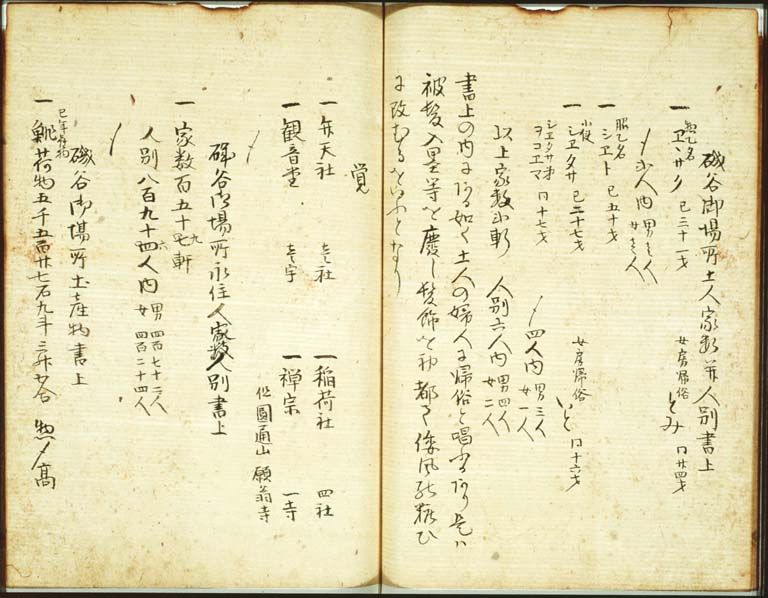 磯谷御場所土人家数并人別書上
一 乙名
ヱンサク 巳三十一才 女房帰俗 とみ 同廿四才
〆弐人内 男壱人 女壱人
一 脇乙名
シヱト 巳五十才
一 小使
シヱタサ 巳二十七才 女房帰俗 いと 同十六才
シヱタサ弟
ヲコヱマ 同十七才
〆四人内 男三人 女一人
以上家数 軒 人別六人内 男四人 女二人
書上の内にある如く土人の婦人に帰俗と唱ふるあり是ハ
被髪入墨等を廃し髪飾を初都て倭風の粧ひ
に改むるをいふとなり
覚
一 弁天社 壱社 一 稲荷社 四社
一 観音堂 壱宇 一 禅宗 一寺
圓通山 願翁寺
〆
磯谷御場所永住人家数人別書上
一 家数百五十九軒
人別八百九十六人内 男 四百七十二人 女 四百二十四人
〆
磯谷御場所土産物書上
巳年
一 鯡荷物五千五百廿七石九斗三升七合 惣〆高